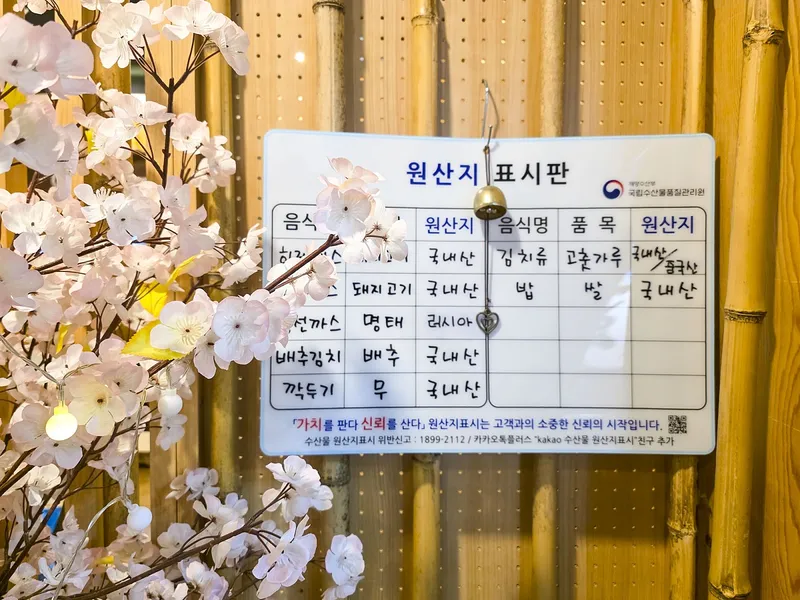 원산지 표시판
해양수산부
국립수산물품질관리원
원산지 음식명 품 목 원산지
국내산 김치류 고춧가루 국내산/중국산
돼지고기 국내산 밥 쌀 국내산
명태 러시아
배추김치 배추 국내산
깍두기 무 국내산
「가치를 판다 신뢰를 산다」 원산지표시는 고객과의 소중한 신뢰의 시작입니다.
수산물 원산지표시 위반신고 : 1899-2112 / 카카오톡플러스 "kakao 수산물 원산지표시"친구 추가